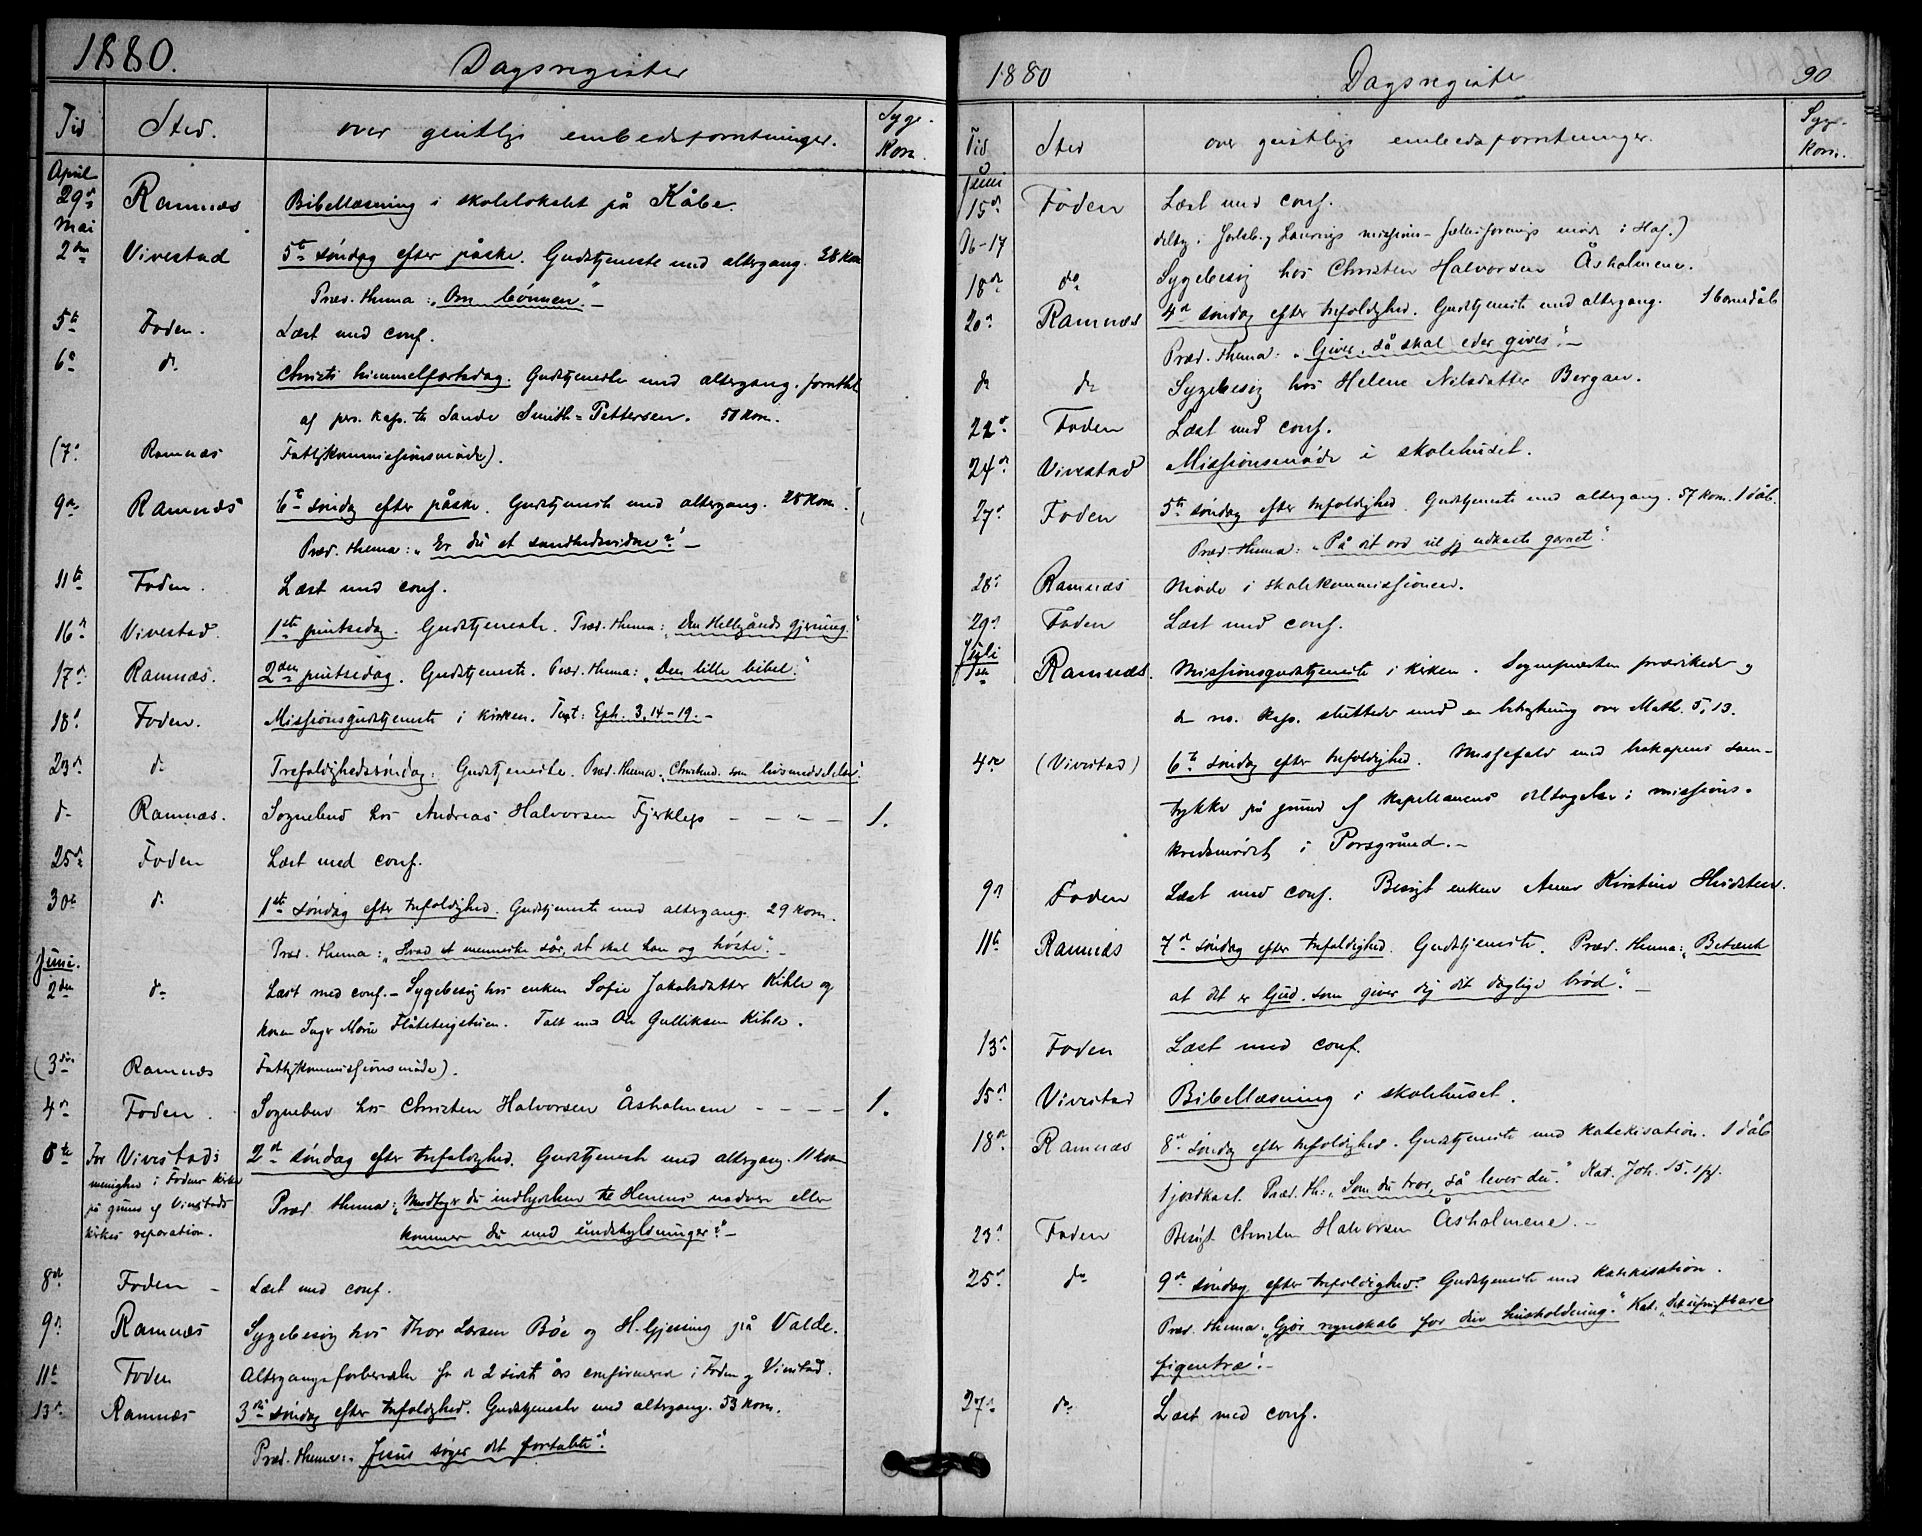 1880.
Dagsregister
Tid Sted. over geistlige embedsforretninger. Syge-
Kom.
April
29de Ramnæs Bibellæsning i skolelokalet på Kåbe.
Mai
2den Vivestad 5te søndag efter påske. Gudstjeneste med altergang. 28 kom
Præd. thema: "Om bønnen".-
5te Foden. Læst med conf.
6te do. Christi himmelfartsdag. Gudstjeneste med altergang. forrettet
af pers. kap. til Sande Smith-Pettersen. 50 kom.
(7de Ramnæs Fattigkommissionsmøde).
9de Ramnæs 6te søndag efter påske. Gudstjeneste med altergang. 28 kom.
Præd. thema: "Er du et sandhedsvidne?" -
11te Foden. Læst med conf.
16de Vivestad. 1ste pintsedag. Gudstjeneste. Præd. thema: "Den Helligånds gjerning."
17de Ramnæs. 2den pintsedag. Gudstjeneste. Præd. thema: "Den lille bibel."
18de Foden. Missionsgudstjeneste i kirken. Text: Eph. 3, 14-19.-
23de do Trefoldighedssøndag. Gudstjeneste. Præd. thema: "Christend. som livsmeddelelse".
do Ramnæs. Sognebud hos Andreas Halvorsen Fjerklep - - - - 1.
25de Foden Læst med conf.
30te do 1ste søndag efter trefoldighed. Gudstjeneste med altergang. 29 kom.
Præd. thema: "Hvad et menneske sår, det skal han og høste".-
Juni.
2den do Læst med conf. - Sygebesøg hos enken Sofie Jakobsdatter Kihle og
konen Inger Marie Flåteteigstuen. Talt med Ole Gulliksen Kihle.
(3die Ramnæs Fattigkommissionsmøde).
4de Foden. Sognebud hos Christen Halvorsen Åsholmene - - - - 1.
6te For Vivestads 2den søndag efter trefoldighed. Gudstjeneste med altergang. 11 kom
menighed i Fodens kirke
på grund af Vivestads Præd. thema: "Modtager du indbydelsen til Herrens nadvere eller
kirkes reparation. kommer du med undskyldninger?" -
8de Foden - Læst med conf.
9de Ramnæs Sygebesøg hos Thor Larsen Bøe og H. Gjessing på Valde.
11te Foden Altergangsforberedelse for de 2 sidste års confirmerede i Foden og Vivestad.
13de Ramnæs 3die søndag efter trefoldighed. Gudstjeneste med altergang. 53 kom.
Præd. thema: "Jesus søger det fortabte".
1880 Dagsregister 90
Tid Sted over geistlige embedsforretninger. Syge-
kom.
Juni
15de Foden Læst med conf.
16-17 deltog i Jarlsberg Laurvigs missions-fællesforenings møde i Hof.)
18de do Sygebesøg hos Christen Halvorsen Åsholmene.
20de Ramnæs 4de søndag efter trefoldighed. Gudstjeneste med altergang. 1 barnedåb
Præd. thema: "Giver, så skal eder gives".-
do do Sygebesøg hos Helene Nilsdatter Bergan.
22de Foden Læst med conf.
24de Vivestad Missionsmøde i skolehuset.
27de Foden 5te søndag efter trefoldighed. Gudstjeneste med altergang. 57 kom. 1 dåb.
Præd. thema: "På dit ord vil jeg udkaste garnet".
28de Ramnæs Møde i skolekommissionen.
29de Foden Læst med conf.
Juli
1ste Ramnæs. Missionsgudstjeneste i kirken. Sognepresten prædikede og
de res. kap. sluttede med en betragtning over Math. 5, 13.
4de (Vivestad) 6te søndag efter trefoldighed. Messefald med biskopens sam-
tykke på grund af kapellanens deltagelse i missions-
kredsmødet i Porsgrund.-
9de Foden Læst med conf. Besøgt enken Anne Kirstine Hvidsten.
11te Ramnæs 7de søndag efter trefoldighed. Gudstjeneste. Præd. thema: "Betænk
at det er Gud, som giver dig dit daglige brød". -
13de Foden Læst med conf.
15de Vivestad Bibellæsning i skolehuset.
18de Ramnæs 8de søndag efter trefoldighed. Gudstjeneste med katekisation. 1 dåb
1 jordkast. Præd. th: "Som du tror, så lever du." Kat. Joh. 15, 1 fg.
23de Foden Besøgt Christen Halvorsen Åsholmene. -
25de do 9de søndag efter trefoldighed. Gudstjeneste med katekisation.
Præd. thema: "Gjør regnskab for din husholdning." Kat. "Det ufrugtbare
figentræ".-
27de do Læst med conf.